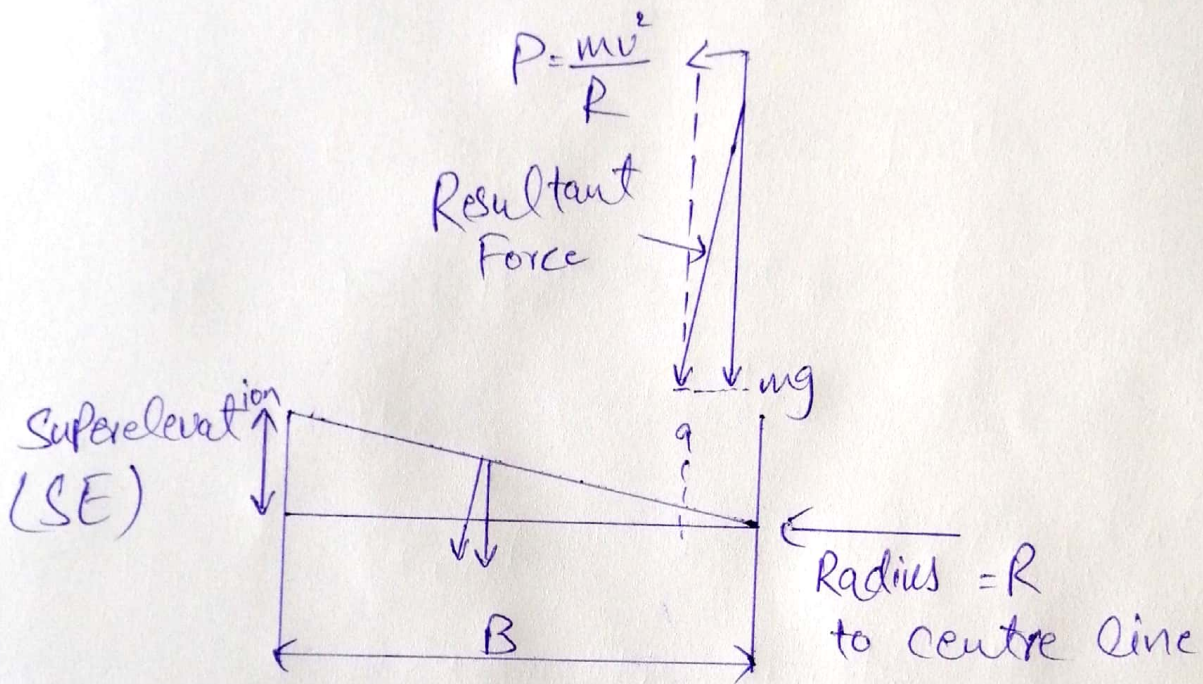 P = mv²
R
Resultant
Force
mg
Superelevation
(SE)
q
Radius = R
to centre line
B